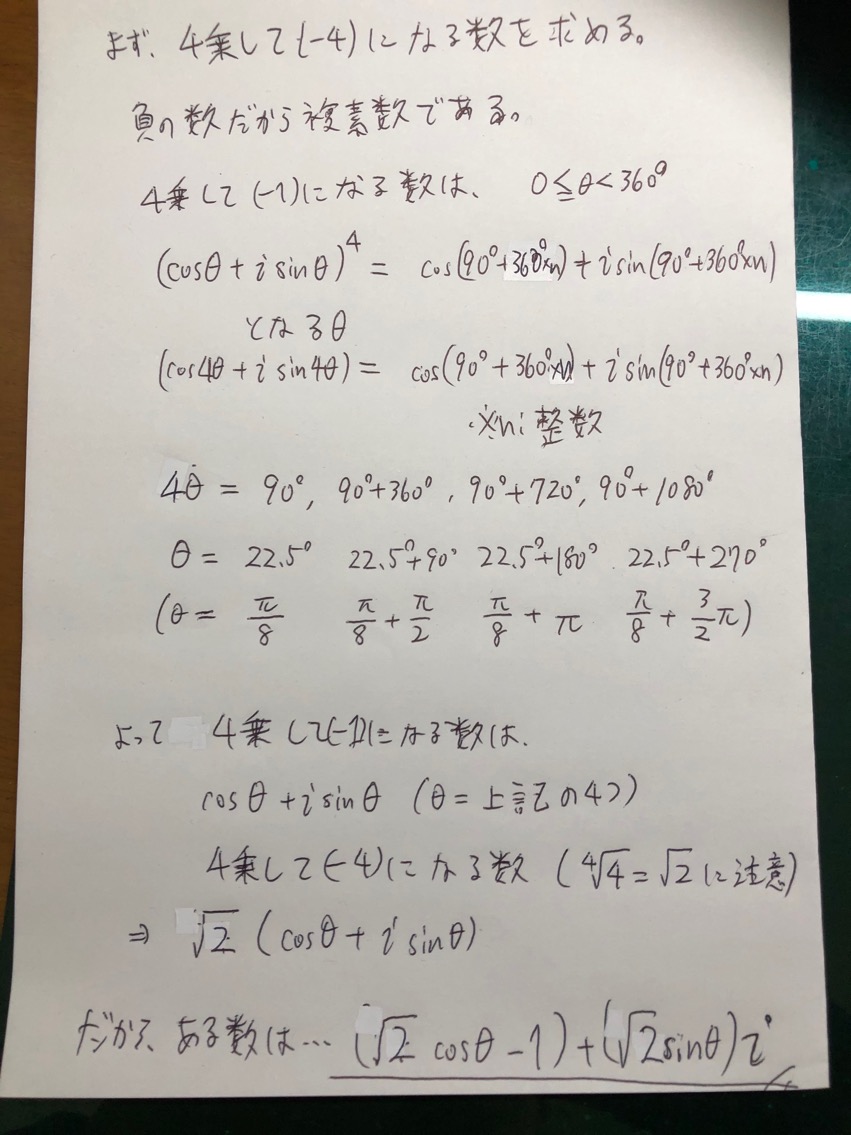 まず、4乗して(-4)になる数を求める。
負の数だから複素数である。
4乗して(-1)になる数は、 0≦θ<360°
(cosθ+i sinθ)^4 = cos(90°+360°×n)+i sin(90°+360°×n)
となるθ
(cos4θ+i sin4θ) = cos(90°+360°×n)+i sin(90°+360°×n)
※n: 整数
4θ = 90°, 90°+360°, 90°+720°, 90°+1080°
θ = 22.5° 22.5°+90° 22.5°+180° 22.5°+270°
(θ = π/8 π/8+π/2 π/8+π π/8+3/2π)
よって 4乗して(-1)になる数は、
cosθ+i sinθ (θ=上記の4つ)
4乗して(-4)になる数 (∜4=√2に注意)
⇒ √2 (cosθ+i sinθ)
だから、ある数は… (√2 cosθ-1)+(√2sinθ)i